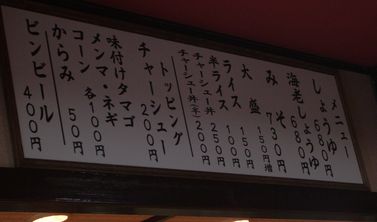 メニュー
しょうゆ 680円
海老しょうゆ 680円
みそ 730円
大盛 150円増
ライス 150円
半ライス 100円
チャーシュー丼 250円
チャーシュー丼(小) 200円
トッピング
チャーシュー 200円
味付けタマゴ
メンマ・ネギ
コーン 各100円
からみ 50円
ビンビール 400円